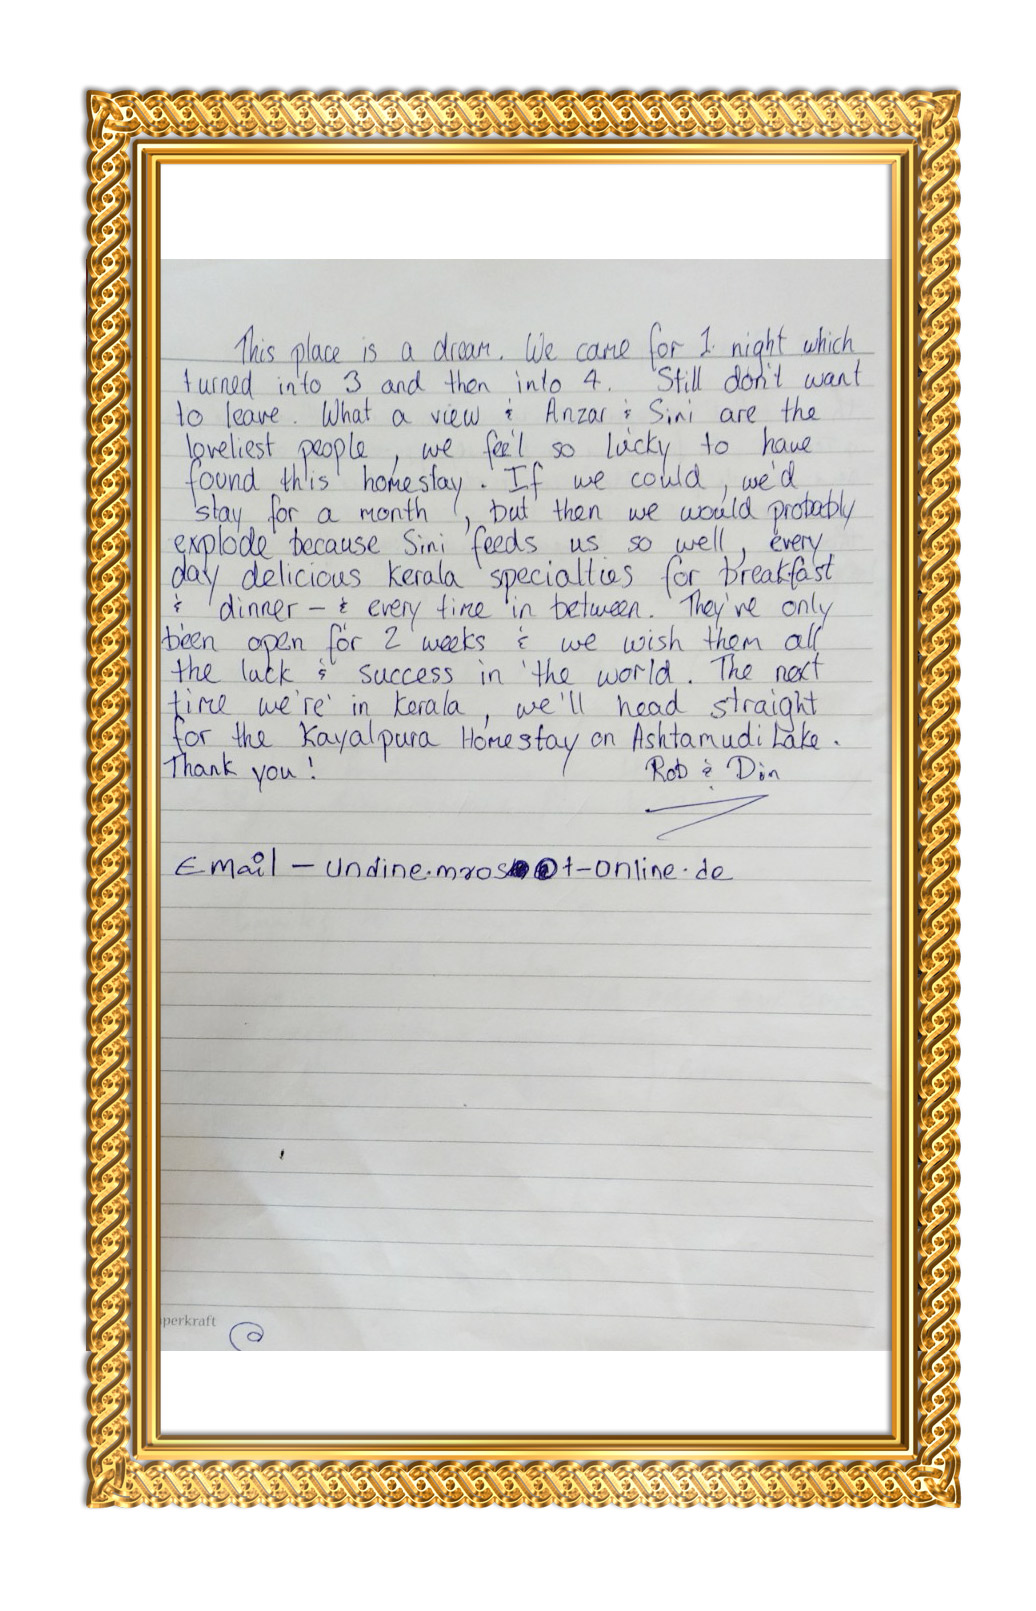 This place is a dream. We came for 1 night which
turned into 3 and then into 4. Still don't want
to leave. What a view & Anzar & Sini are the
loveliest people, we feel so lucky to have
found this homestay. If we could, we'd
stay for a month, but then we would probably
explode because Sini feeds us so well, every
day delicious Kerala specialties for breakfast
& dinner - & every time in between. They're only
been open for 2 weeks & we wish them all
the luck & success in the world. The next
time we're in Kerala, we'll head straight
for the Kayalpura Homestay on Ashtamudi Lake.
Thank you! Rob & Din
Email - undine.mros@t-online.de
perkraft